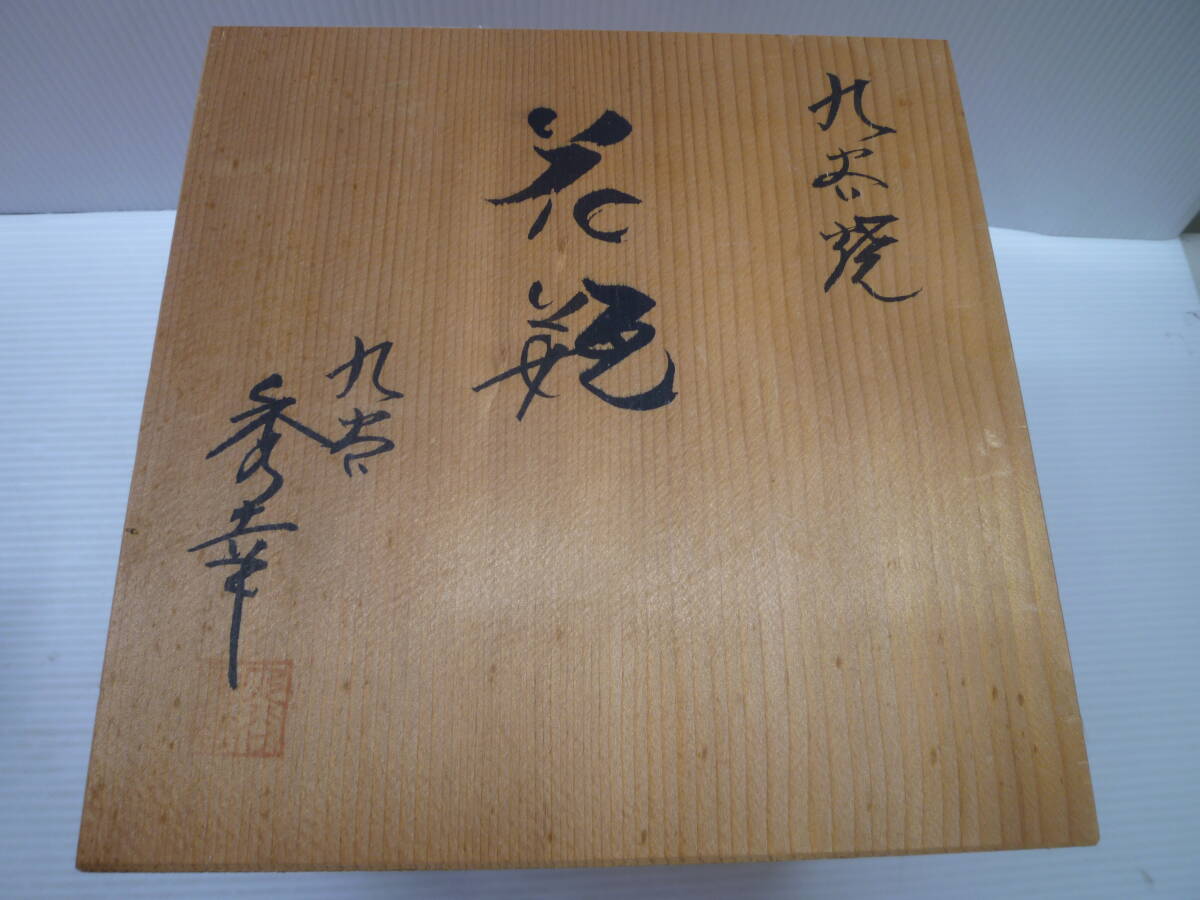 九谷焼
花瓶
九谷
秀幸